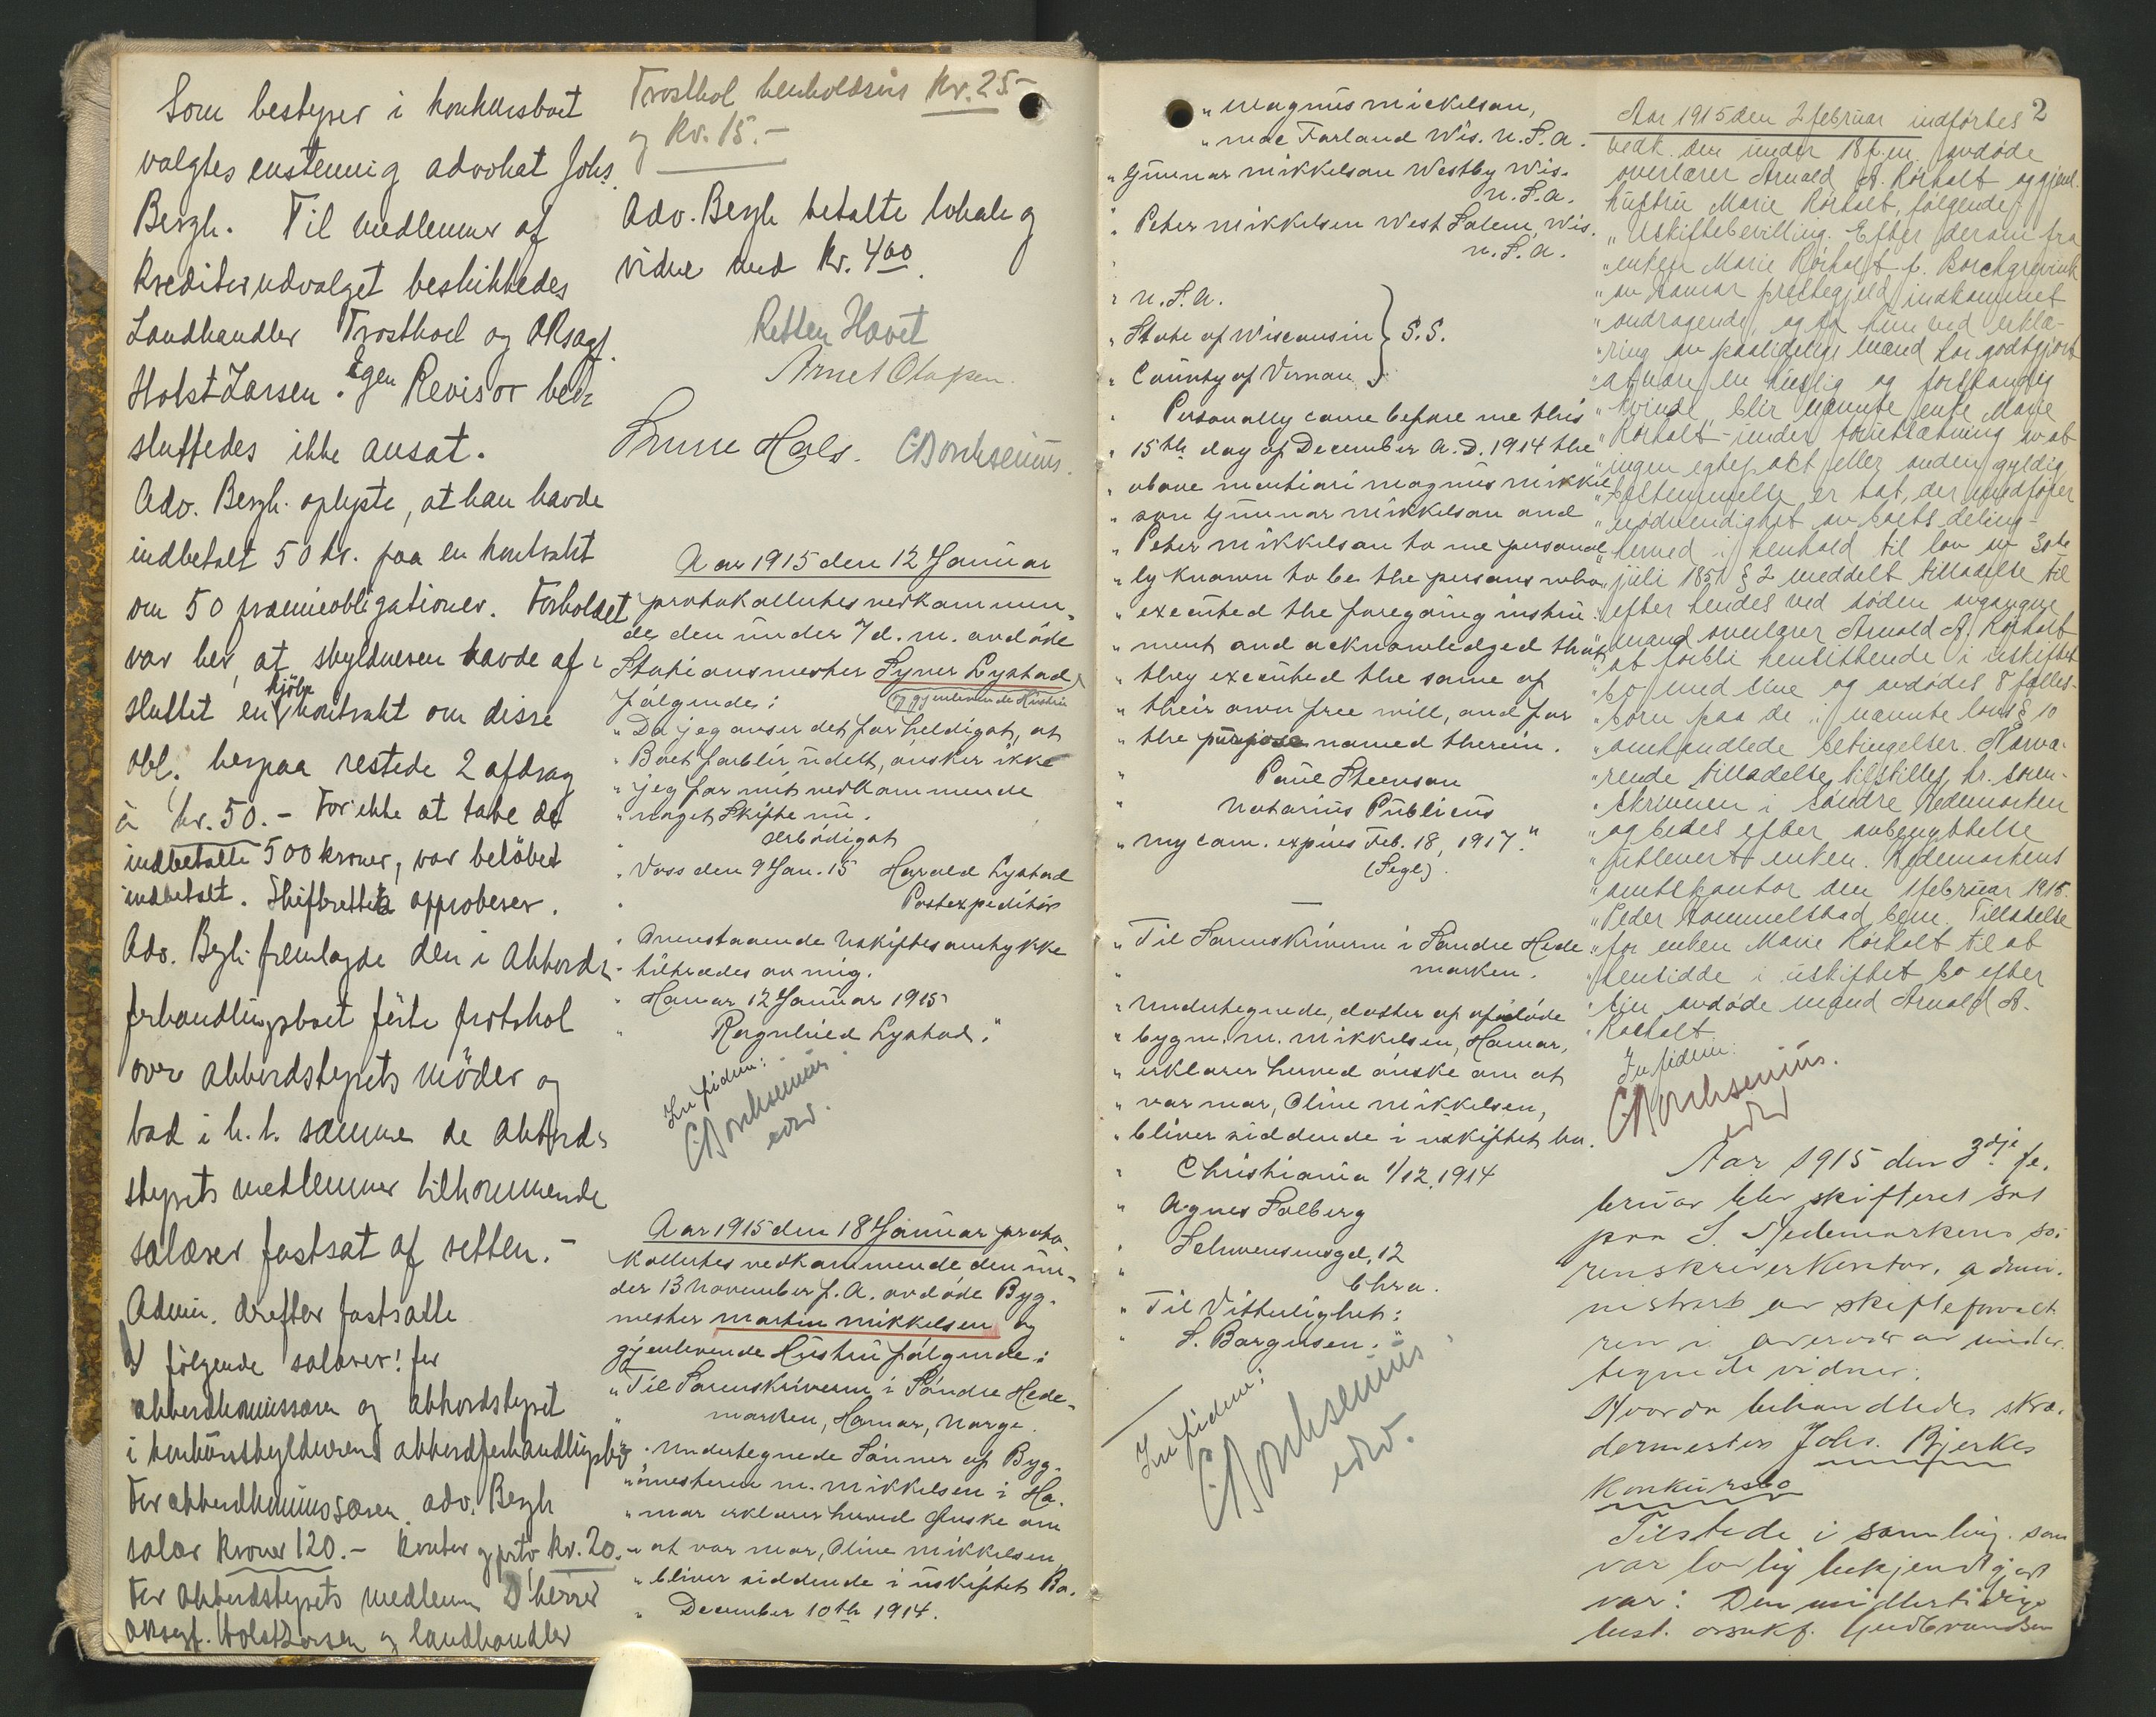 Som bestyrer i konkursboet
valgtes enstemmig advokat Johs.
Bergh. Til medlemmer af
kreditorudvalget beskikkedes
Landhandler Trosthol og ORsagf.
Holst-Larsen. Egen Revisor bes-
sluttedes ikke ansat.
Adv. Bergh. oplyste, at han havde
indbetalt 50 kr. paa en kontrakt
om 50 præmieobligationer. Forholdet
var her, at skyldneren havde af-
sluttet en kjöbe kontrakt om disse
obl. herpaa restede 2 afdrag
à kr. 50.- For ikke at tabe de
indbetalte 500 kroner, var belöbet
indbetalt. Skifteretten approberer.
Adv. Bergh fremlagde den i akkords-
forhandlingsboet förte protokol
over akkordstyrets möder og
bad i h. t. samme de akkord-
styrets medlemmer tilkommende
salærer fastsat af retten.-
Admin. derefter fastsatte
følgende salærer: for
akkordkommissæren og akkordstyret
i akkordforhandlingsbo
For akkordkommissæren adv. Bergh
salær kroner 120.- Kontor og porto kr. 20.-
For akkordstyrets medlem D'herrer
ORsagf. Holst Larsen og landhandler
Trosthol henholdsvis kr. 25-
og kr. 15.-
Adv. Bergh betalte lokale og
vidne med kr. 4 00.
Retten Hævet
Arnet Olafsen.
Hals. C Borchsenius.
Aar 1915 den 12 Januar
protokollertes vedkommen-
de den under 7 d. m. avdöde
Stationsmester Syver Lystad
og gjenlevende Hustru
fölgende:
"Da jeg anser det for heldigst, at
"Boet forblir udelt, önsker ikke
"jeg for mit vedkommende
"noget Skifte nu.
" ærbödigst
"Voss den 9 Jan. 15 Harald Lystad
" Postexpeditör
"Ovenstaaende Uskiftesamtykke
"tiltrædes av mig.
"Hamar 12 Januar 1915
" Ragnhild Lystad."
In fidem:
C Borchsenius
edv.
Aar 1915 den 18 Januar proto-
kollertes vedkommende den un-
der 13 November f. A. avdöde Byg-
mester Martin Mikkelsen og
gjenlevende Hustru fölgende:
"Til Sorenskriveren i Söndre Hede-
" marken, Hamar, Norge.
"Undertegnede Sönner af Byg-
"mesteren M. Mikkelsen i Ha-
"mar erklærer herved Önske om
"at vor mor, Oline Mikkelsen,
"bliver siddende i uskiftet Bo.
" December 10th 1914.
" Magnus Mickelson,
" Mac Farland Wis. U.S.A.
"Gunnar Mikkelson Westby Wis.
U.S.A.
"Peter Mikkelsen West Salem, Wis.
U.S.A.
"U.S.A.
"State of Wisconsin } S.S.
"County of Vernon
" Personally came before me this
"15th day of December A.D. 1914 the
"above Magnus Mikkel-
"son Gunnar Mikkelson and
"Peter Mikkelsen to me personal-
"ly known to be the persons who
"executed the foregoing instru-
"ment and acknowledged that
"they executed the same of
"their own free will, and for
"the purpose named therein.
" Paul Steenson
" Notarius Publicus
"my com. expires Feb. 18, 1917."
(Segl).
"Til Sorenskriveren i Söndre Hede-
" marken.
"Undertegnede, datter af afdöde
"bygm. M. Mikkelsen, Hamar,
"erklærer herved önske om at
"vor mor, Oline Mikkelsen,
"bliver siddende i uskiftet bo.
" Christiania 1/12. 1914
" Agnes Solberg
" Schwensensgd. 12
" Chra.
"Til Vitterlighet:
" S. Borgersen."
In fidem:
C Borchsenius
edv.
2
Aar 1915 den 2 februar indförtes
vedk. den under 18 f.m. avdöde
overlærer Arnold A. Rörholt og gjenl.
hustru Marie Rörholt, fölgende:
"Uskiftebevilling. Efter derom fra
"enken Marie Rörholt f. Borchgrevink
"av Hamar præstegjeld indkommet
"andragende, og da hun ved erklæ-
"ring av paalidelige mænd har godtgjort
"at være en huslig og forstandig
"kvinde, blir nævnte enke Marie
"Rörholt - under forutsætning av at
"ingen egtepakt eller anden gyldig
"bestemmelse er tat, der medförer
"nödvendighet av boets deling -
"herved i henhold til lov av 30te
"juli 1851 § 2 meddelt tilladelse til
"efter hendes ved döden avgangne
"mand overlærer Arnold A. Rörholt
"at forbli hensittende i uskiftet
"bo med sine og avdödes 8 fælles-
"börn paa de i nævnte lovs § 10
"omhandlede betingelser. Nærvæ-
"rende tilladelse tilstilles hr. soren-
"skriveren i söndre Hedemarken
"og bedes efter avbenyttelse
"utlevert enken. Hedemarkens
"amtskontor den 1 februar 1915.
"Peder Hommelstad bem. Tilladelse
"for enken Marie Rörholt til at
"hensidde i uskiftet bo efter
"sin avdöde mand Arnold A.
"Rörholt.
In fidem:
C Borchsenius.
edv
Aar 1915 den 3dje fe-
bruar blev skifteret sat
paa S. Hedemarkens so-
renskriverkontor, admi-
nistrert av skifteforvalt
ren i overvær av under-
tegnede vidner.
Hvorda behandledes skræ-
dermester Johs. Bjerkes
Konkursbo
Tilstede i samling som
var lovlig bekjendtgjort
var: Den midlertidige
best. orsakf. Gudbrandsen